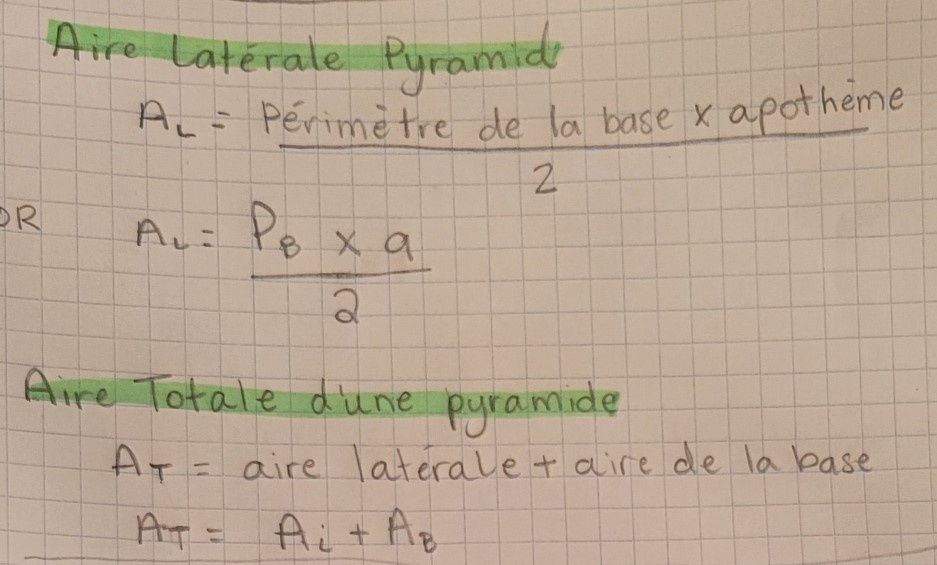 Aire Latérale Pyramid
A_L = Périmètre de la base x apothème
2
OR A_L = P_B x a
2
Aire Totale d'une pyramide
A_T = aire latérale + aire de la base
A_T = A_L + A_B